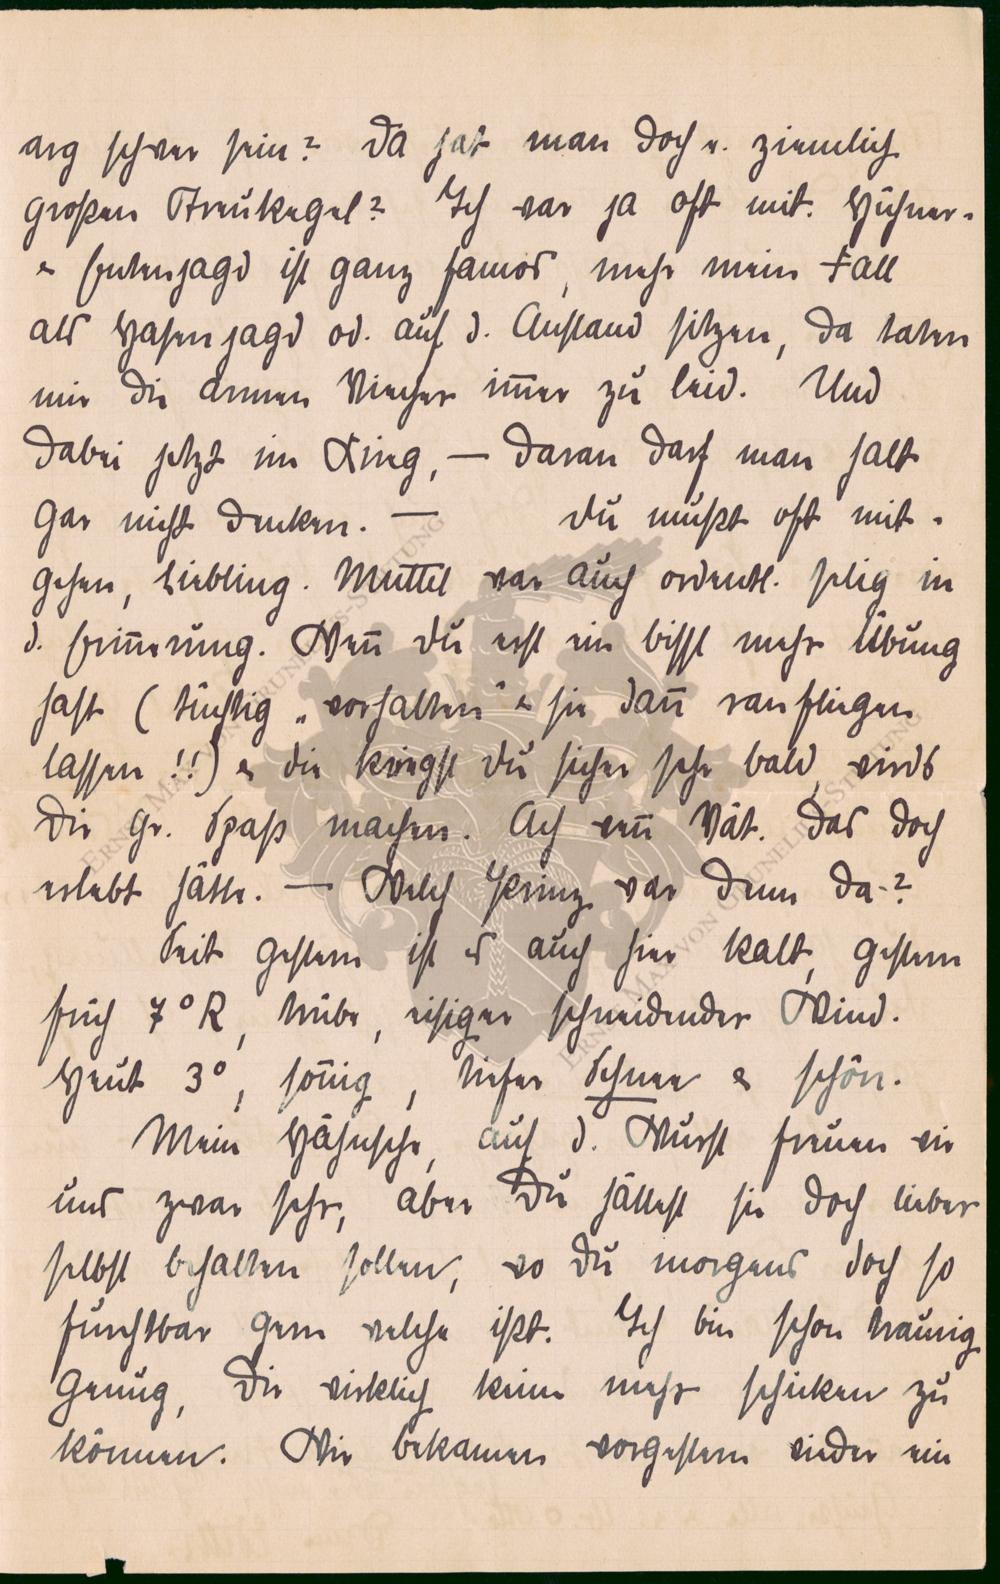 arg schwer sein? Da hat man doch e. ziemlich
großen Streukegel? Ich war ja oft mit. Hühner-
& Entenjagd ist ganz famos, mehr mein Fall
als Hasenjagd od. auf d. Anstand sitzen, da taten
mir die armen Viecher im̄er zu leid. Und
dabei jetzt im Krieg, — daran darf man halt
gar nicht denken. — Du mußt oft mit-
gehen, Liebling. Muttel war auch ordentl. selig in
d. Erin̄erung. Wen̄ Du erst ein bissl mehr Übung
hast (tüchtig „vorhalten" & sie dan̄ ranfliegen
lassen!!) & die kriegst Du sicher sehr bald, wirds
Dir gr. Spaß machen. Ach wen̄ Vät. das doch
erlebt hätte. — Welch Prinz war denn da?
Seit gestern ist es auch hier kalt, gestern
früh 7° R, trübe, eisiger schneidender Wind.
Heut 3°, son̄ig, tiefer Schnee & schön.
Mein Hähnsche, auf d. Wurst freuen wir
uns zwar sehr, aber Du hättest sie doch lieber
selbst behalten sollen, wo Du morgens doch so
furchtbar gern welche ißt. Ich bin schon traurig
genug, Dir wirklich keine mehr schicken zu
können. Wir bekamen vorgestern wieder ein
ERNST MAX VON GRUNELIUS-STIFTUNG
ERNST MAX VON GRUNELIUS-STIFTUNG